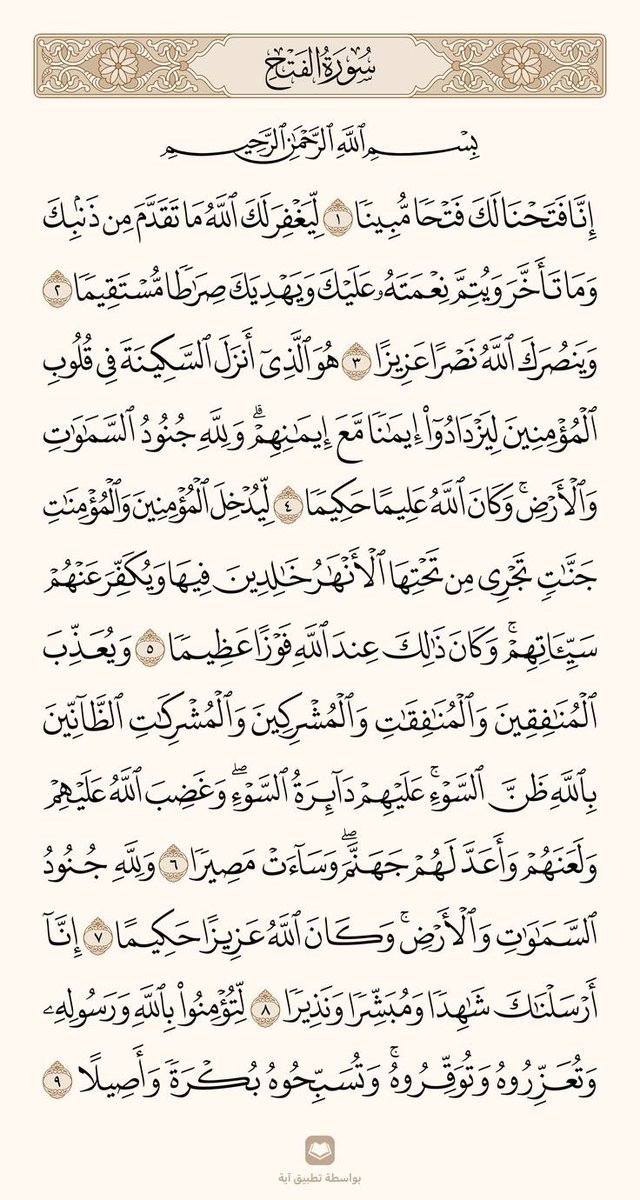 سُورَةُ الفَتْحِ
بِسْمِ ٱللَّهِ ٱلرَّحْمَٰنِ ٱلرَّحِيمِ
إِنَّا فَتَحْنَا لَكَ فَتْحًا مُّبِينًا ١ لِّيَغْفِرَ لَكَ ٱللَّهُ مَا تَقَدَّمَ مِن ذَنۢبِكَ
وَمَا تَأَخَّرَ وَيُتِمَّ نِعْمَتَهُۥ عَلَيْكَ وَيَهْدِيَكَ صِرَٰطًا مُّسْتَقِيمًا ٢
وَيَنصُرَكَ ٱللَّهُ نَصْرًا عَزِيزًا ٣ هُوَ ٱلَّذِىٓ أَنزَلَ ٱلسَّكِينَةَ فِى قُلُوبِ
ٱلْمُؤْمِنِينَ لِيَزْدَادُوٓا۟ إِيمَٰنًا مَّعَ إِيمَٰنِهِمْ ۗ وَلِلَّهِ جُنُودُ ٱلسَّمَٰوَٰتِ
وَٱلْأَرْضِ ۚ وَكَانَ ٱللَّهُ عَلِيمًا حَكِيمًا ٤ لِّيُدْخِلَ ٱلْمُؤْمِنِينَ وَٱلْمُؤْمِنَٰتِ
جَنَّٰتٍ تَجْرِى مِن تَحْتِهَا ٱلْأَنْهَٰرُ خَٰلِدِينَ فِيهَا وَيُكَفِّرَ عَنْهُمْ
سَيِّـَٔاتِهِمْ ۚ وَكَانَ ذَٰلِكَ عِندَ ٱللَّهِ فَوْزًا عَظِيمًا ٥ وَيُعَذِّبَ
ٱلْمُنَٰفِقِينَ وَٱلْمُنَٰفِقَٰتِ وَٱلْمُشْرِكِينَ وَٱلْمُشْرِكَٰتِ ٱلظَّآنِّينَ
بِٱللَّهِ ظَنَّ ٱلسَّوْءِ ۚ عَلَيْهِمْ دَآئِرَةُ ٱلسَّوْءِ ۖ وَغَضِبَ ٱللَّهُ عَلَيْهِمْ
وَلَعَنَهُمْ وَأَعَدَّ لَهُمْ جَهَنَّمَ ۖ وَسَآءَتْ مَصِيرًا ٦ وَلِلَّهِ جُنُودُ
ٱلسَّمَٰوَٰتِ وَٱلْأَرْضِ ۚ وَكَانَ ٱللَّهُ عَزِيزًا حَكِيمًا ٧ إِنَّآ
أَرْسَلْنَٰكَ شَٰهِدًا وَمُبَشِّرًا وَنَذِيرًا ٨ لِّتُؤْمِنُوا۟ بِٱللَّهِ وَرَسُولِهِۦ
وَتُعَزِّرُوهُ وَتُوَقِّرُوهُ ۚ وَتُسَبِّحُوهُ بُكْرَةً وَأَصِيلًا ٩
بواسطة تطبيق آية